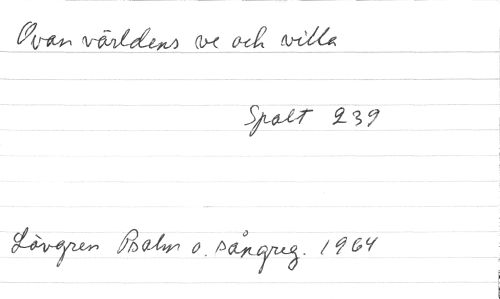 Ovan världens ve och villa
Spalt 239
Lövgren Psalm o. sångreg. 1964